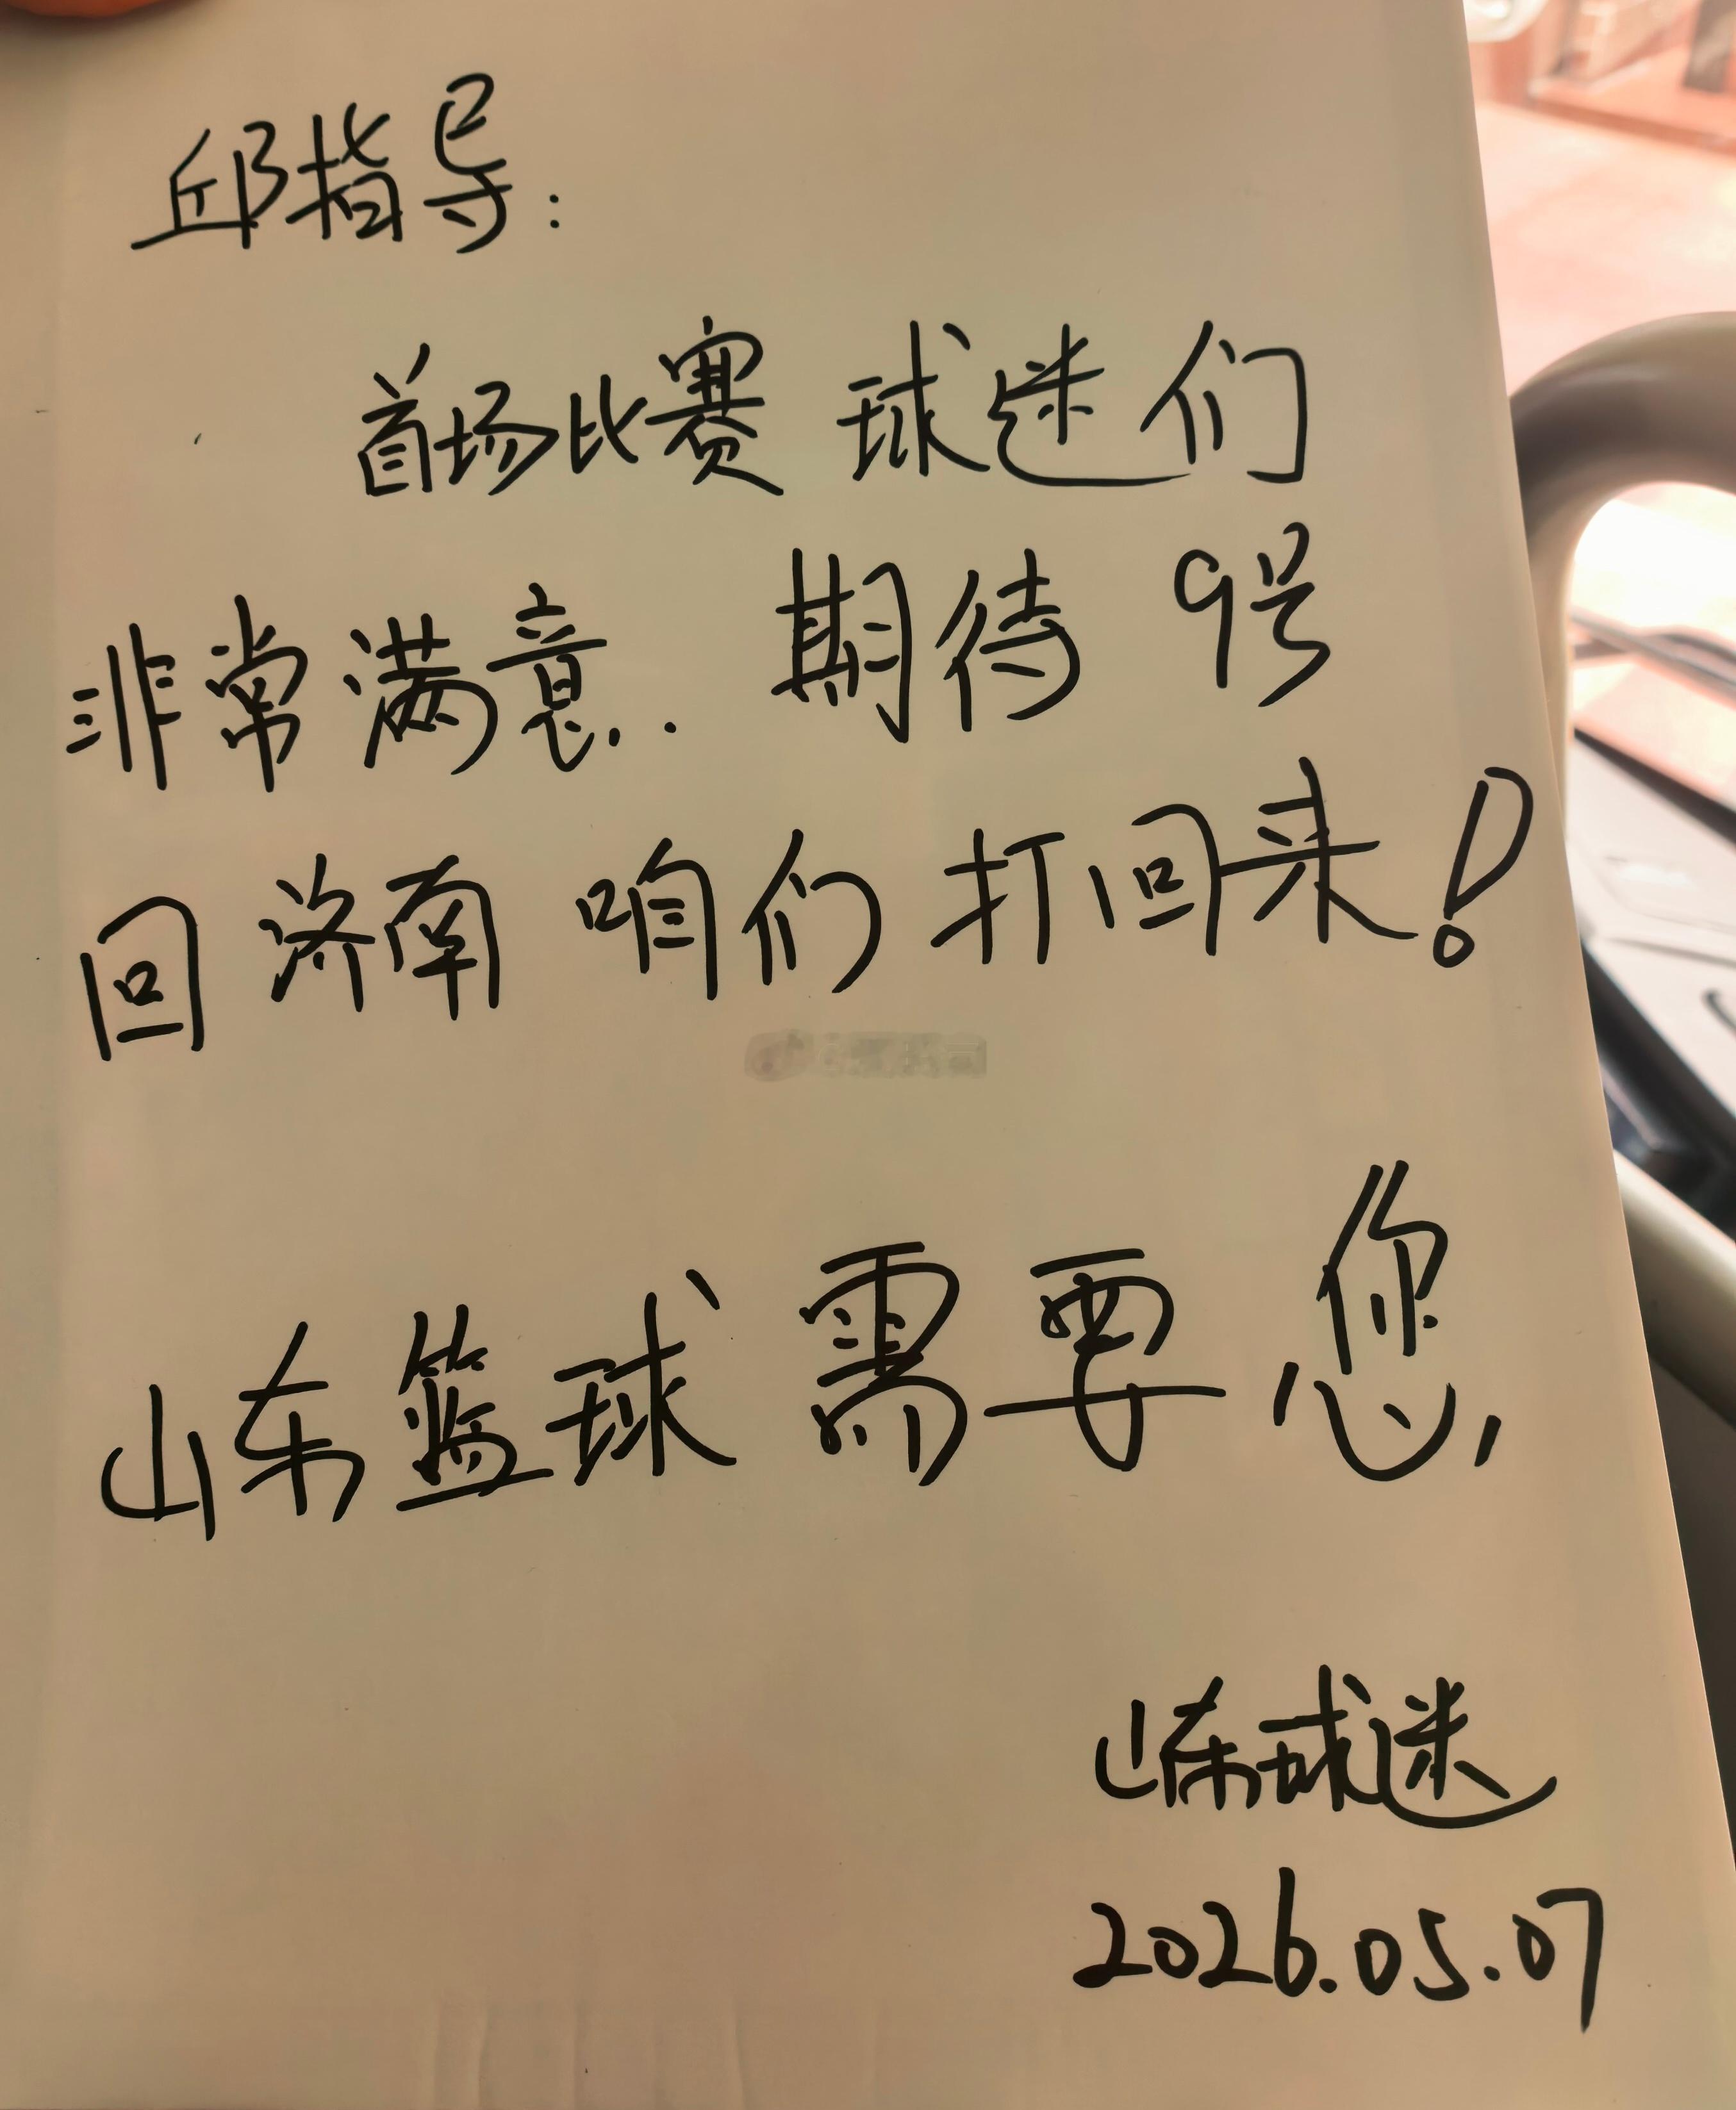 邱指导：
首场比赛 球迷们
非常满意.. 期待 9号
回济南 咱们打回来！
山东篮球需要您,
山东球迷
2026.05.07